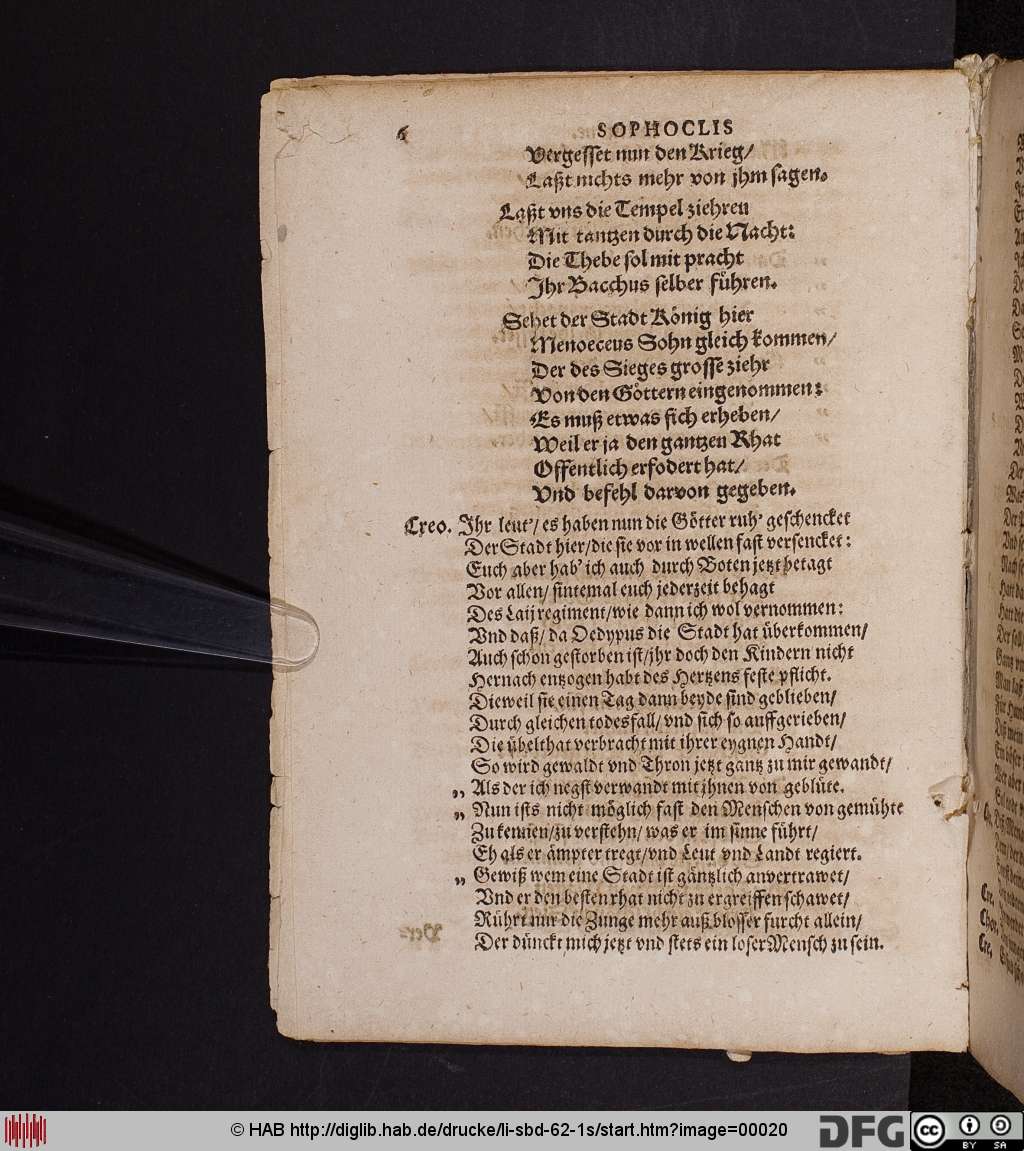 6
SOPHOCLIS
Vergesset nun den Krieg/
Laßt nichts mehr von jhm sagen.
Laßt vns die Tempel ziehren
Mit tantzen durch die Nacht:
Die Thebe sol mit pracht
Ihr Bacchus selber führen.
Sehet der Stadt König hier
Menoeceus Sohn gleich kommen/
Der des Sieges grosse ziehr
Von den Göttern eingenommen:
Es muß etwas sich erheben/
Weil er ja den gantzen Rhat
Offentlich erfodert hat/
Vnd befehl darvon gegeben.
Creo. Ihr leut'/ es haben nun die Götter ruh' geschencket
Der Stadt hier/die sie vor in wellen fast versencket:
Euch aber hab' ich auch durch Boten jetzt betagt
Vor allen/ sintemal euch jederzeit behagt
Des Laij regiment/wie dann ich wol vernommen:
Vnd daß/ da Oedypus die Stadt hat überkommen/
Auch schon gestorben ist/jhr doch den Kindern nicht
Hernach entzogen habt des Hertzens feste pflicht.
Dieweil sie einen Tag dann beyde sind geblieben/
Durch gleichen todesfall/ vnd sich so auffgerieben/
Die übelthat verbracht mit ihrer eygnen Handt/
So wird gewaldt vnd Thron jetzt gantz zu mir gewandt/
„ Als der ich negst verwandt mit jhnen von geblüte.
„ Nun ists nicht möglich fast den Menschen von gemühte
Zu kennen/zu verstehn/ was er im sinne führt/
Eh als er ämpter tregt/vnd Leut vnd Landt regiert.
„ Gewiß wem eine Stadt ist gäntzlich anvertrawet/
Vnd er den besten rhat nicht zu ergreiffen schawet/
Rührt nur die Zunge mehr auß blosser furcht allein/
Der dünckt mich jetzt vnd stets ein loser Mensch zu sein.
© HAB http://diglib.hab.de/drucke/li-sbd-62-1s/start.htm?image=00020
DFG
cc
BY SA